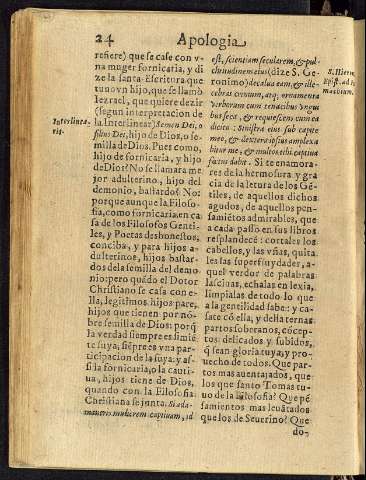 24 Apologia
refiere) que se case con v
na muger fornicaria, y di
ze la santa Escritura que
tuuo vn hijo, que se llamò
Iezrael, que quiere dezir
(segun interpretacion de
la Interlinea) Semen Dei, o
filius Dei, hijo de Dios, o se
milla de Dios. Pues como,
hijo de fornicaria, y hijo
de Dios? No se llamara me
jor adulterino, hijo del
demonio, bastardo? No:
porque aunque la Filoso-
fia, como fornicaria, en ca
sa de los Filosofos Genti-
les, y Poetas deshonestos,
conciba, y para hijos a-
dulterinos, hijos bastar-
dos de la semilla del demo
nio: pero quãdo el Dotor
Christiano se casa con e-
lla, legitimos hijos pare,
hijos que tienen por nõ-
bre semilla de Dios: porq̃
la verdad siempre es simiē
te suya, siēpre es vna par-
ticipacion de la suya: y as-
si la fornicaria, o la cauti-
ua, hijos tiene de Dios,
quando con la Filosofia
Christiana se junta. Si ada-
maueris mulierem captiuam, id
Interlinea
ris.
est, scientiam secularem, & pul-
chritudine eius (dize S. Ge-
ronimo)
bus seca, & requiescem cum ea
dicire: Sinistra eius sub capite
meo, & dextera ipsius amplexa
bitur me, & multos tibi captiua
fœtus dabit. Si te enamora-
res de la hermosura y gra
cia de la letura de los Gē-
tiles, de aquellos dichos
agudos, de aquellos pen-
samiētos admirables, que
a cada passo en sus libros
resplandecē: cortales los
cabellos, y las vñas, quita
les las superfluydades, a-
quel verdor de palabras
lasciuas, echalas en lexia,
limpialas de todo lo que
a la gentilidad sabe: y ca-
sate cõ ella, y della ternas
partos soberanos, cõcep-
tos delicados y subidos,
q̃ sean gloria tuya, y pro-
uecho de todos. Que par-
tos mas auentajados, que
los que santo Tomas tu-
uo de la filosofia? Que pē
samientos mas leuãtados
que los de Seuerino? Que
do-
S. Hieron.
Epist. ad